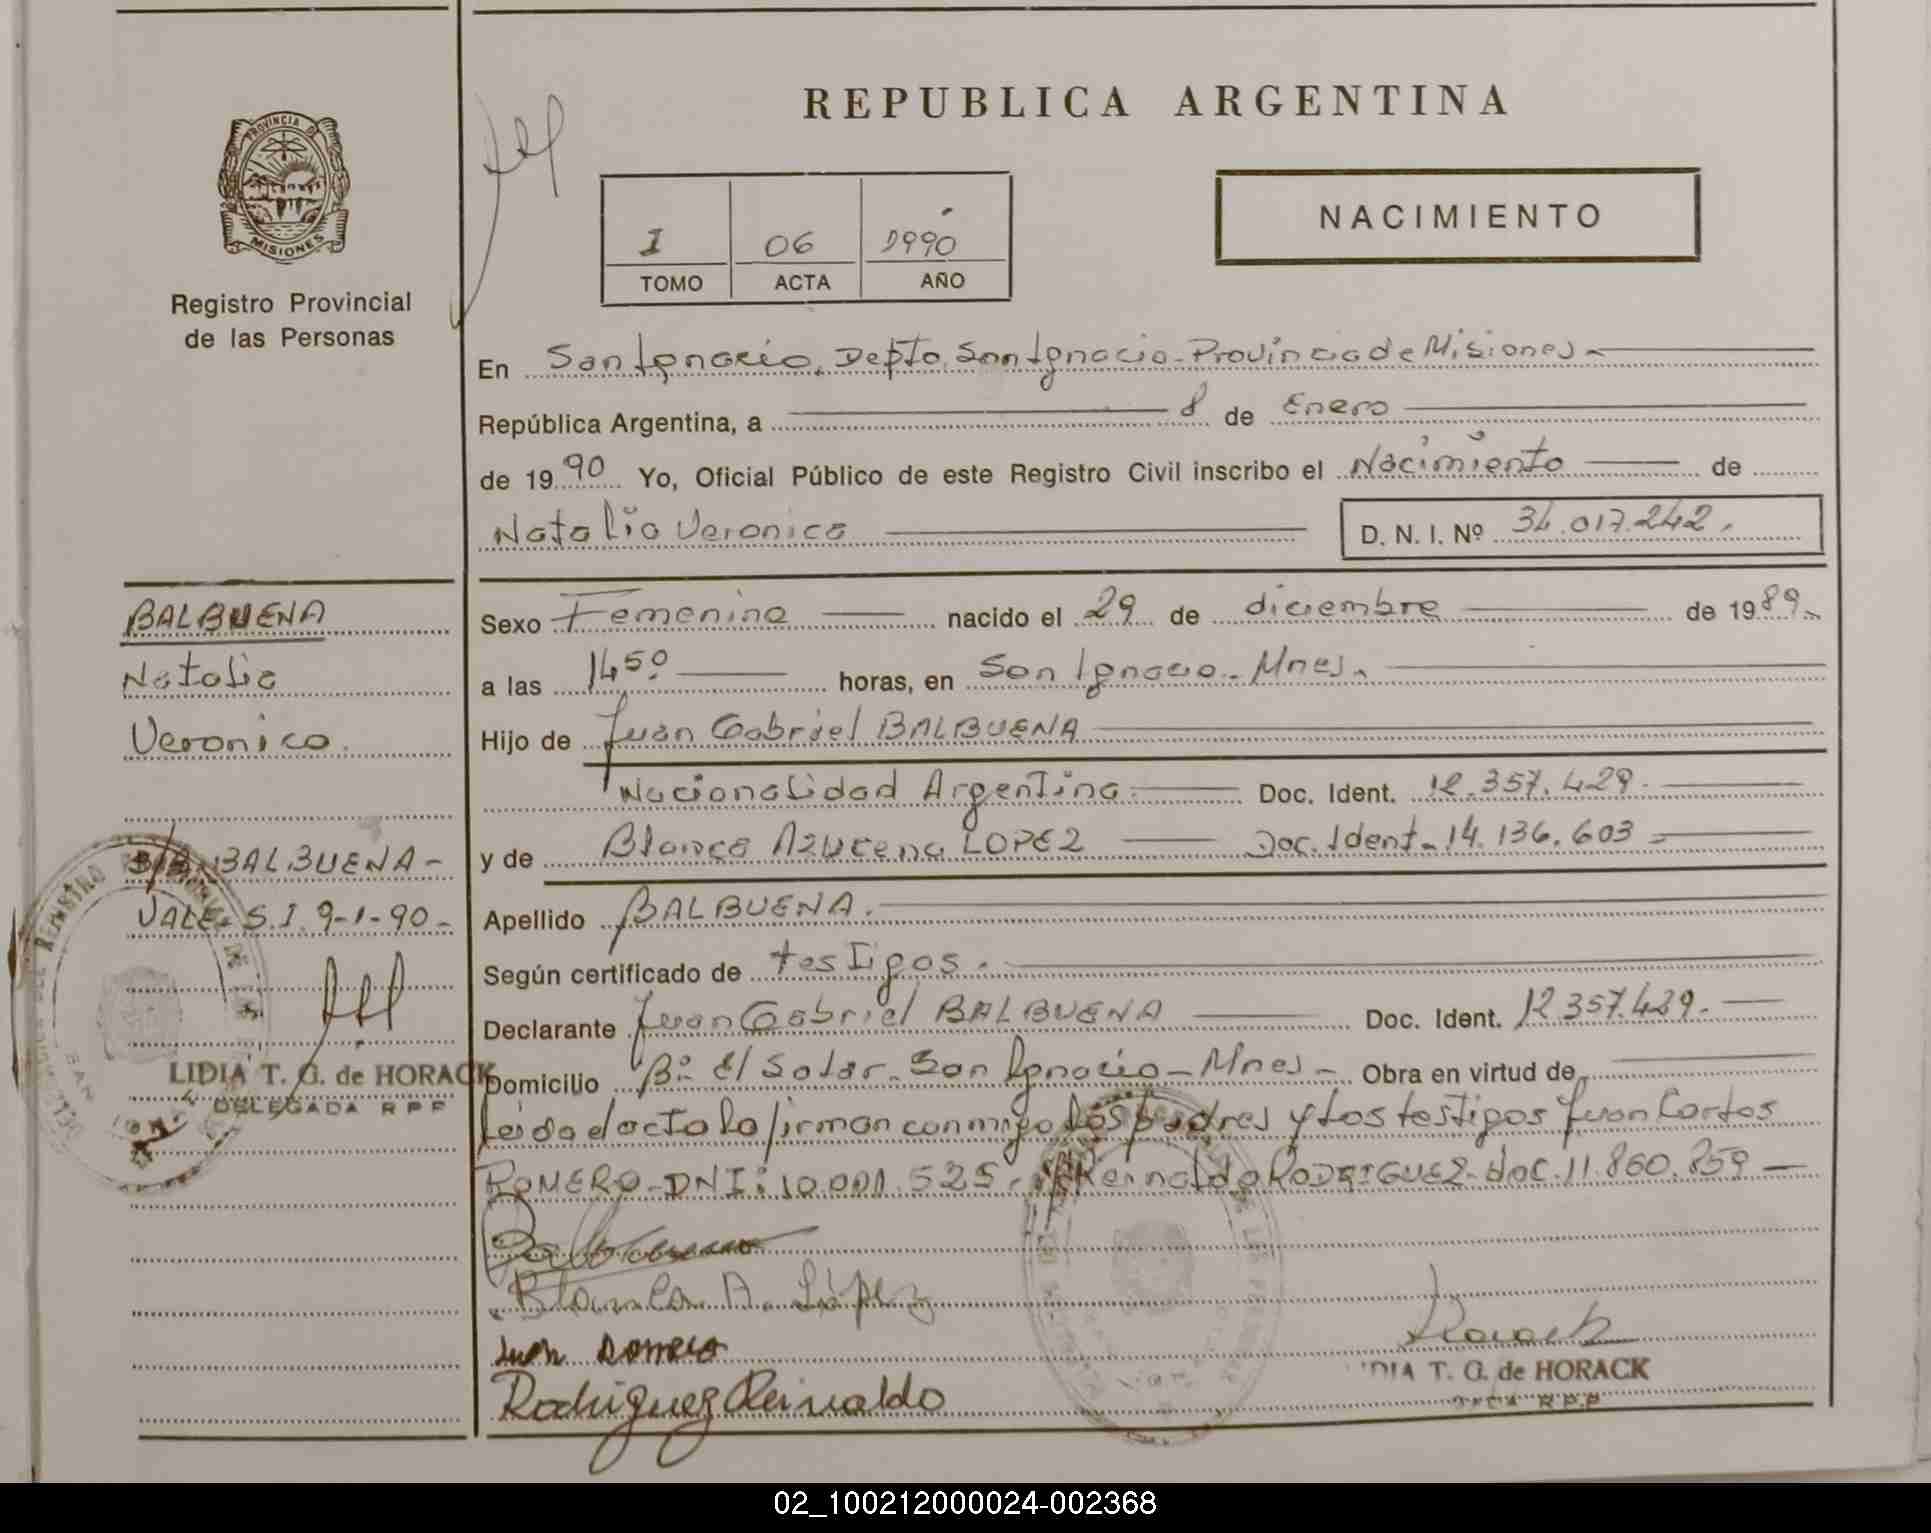 REPUBLICA ARGENTINA
PROVINCIA DE
MISIONES
Registro Provincial
de las Personas
I 06 1990
TOMO ACTA AÑO
NACIMIENTO
En San Ignacio, Depto. San Ignacio - Provincia de Misiones -
República Argentina, a 8 de Enero
de 1990 Yo, Oficial Público de este Registro Civil inscribo el Nacimiento de
Natalia Veronica D. N. I. Nº 34.017.242.
BALBUENA
Natalia
Veronica.
BALBUENA -
VALE. S.I. 9-1-90 -
LIDIA T. G. de HORACK
DELEGADA R P P
Sexo Femenino nacido el 29 de diciembre de 1989.-
a las 14⁵⁰ horas, en San Ignacio - Mnes.
Hijo de Juan Gabriel BALBUENA
Nacionalidad Argentina. Doc. Ident. 12.357.429.
y de Blanca Azucena LOPEZ Doc. Ident. 14.136.603 -
Apellido BALBUENA.
Según certificado de testigos.
Declarante Juan Gabriel BALBUENA Doc. Ident. 12.357.429.
Domicilio Bº El Solar - San Ignacio - Mnes - Obra en virtud de
Leída el acta la firman conmigo los padres y los testigos Juan Carlos
ROMERO - DNI: 10.001.525. Reinaldo RODRIGUEZ - doc. 11.860.859 -
Balbuena
Blanca A. López
Juan Romero
Rodriguez Reinaldo
Horack
IDIA T. G. de HORACK
R P P
02_100212000024-002368